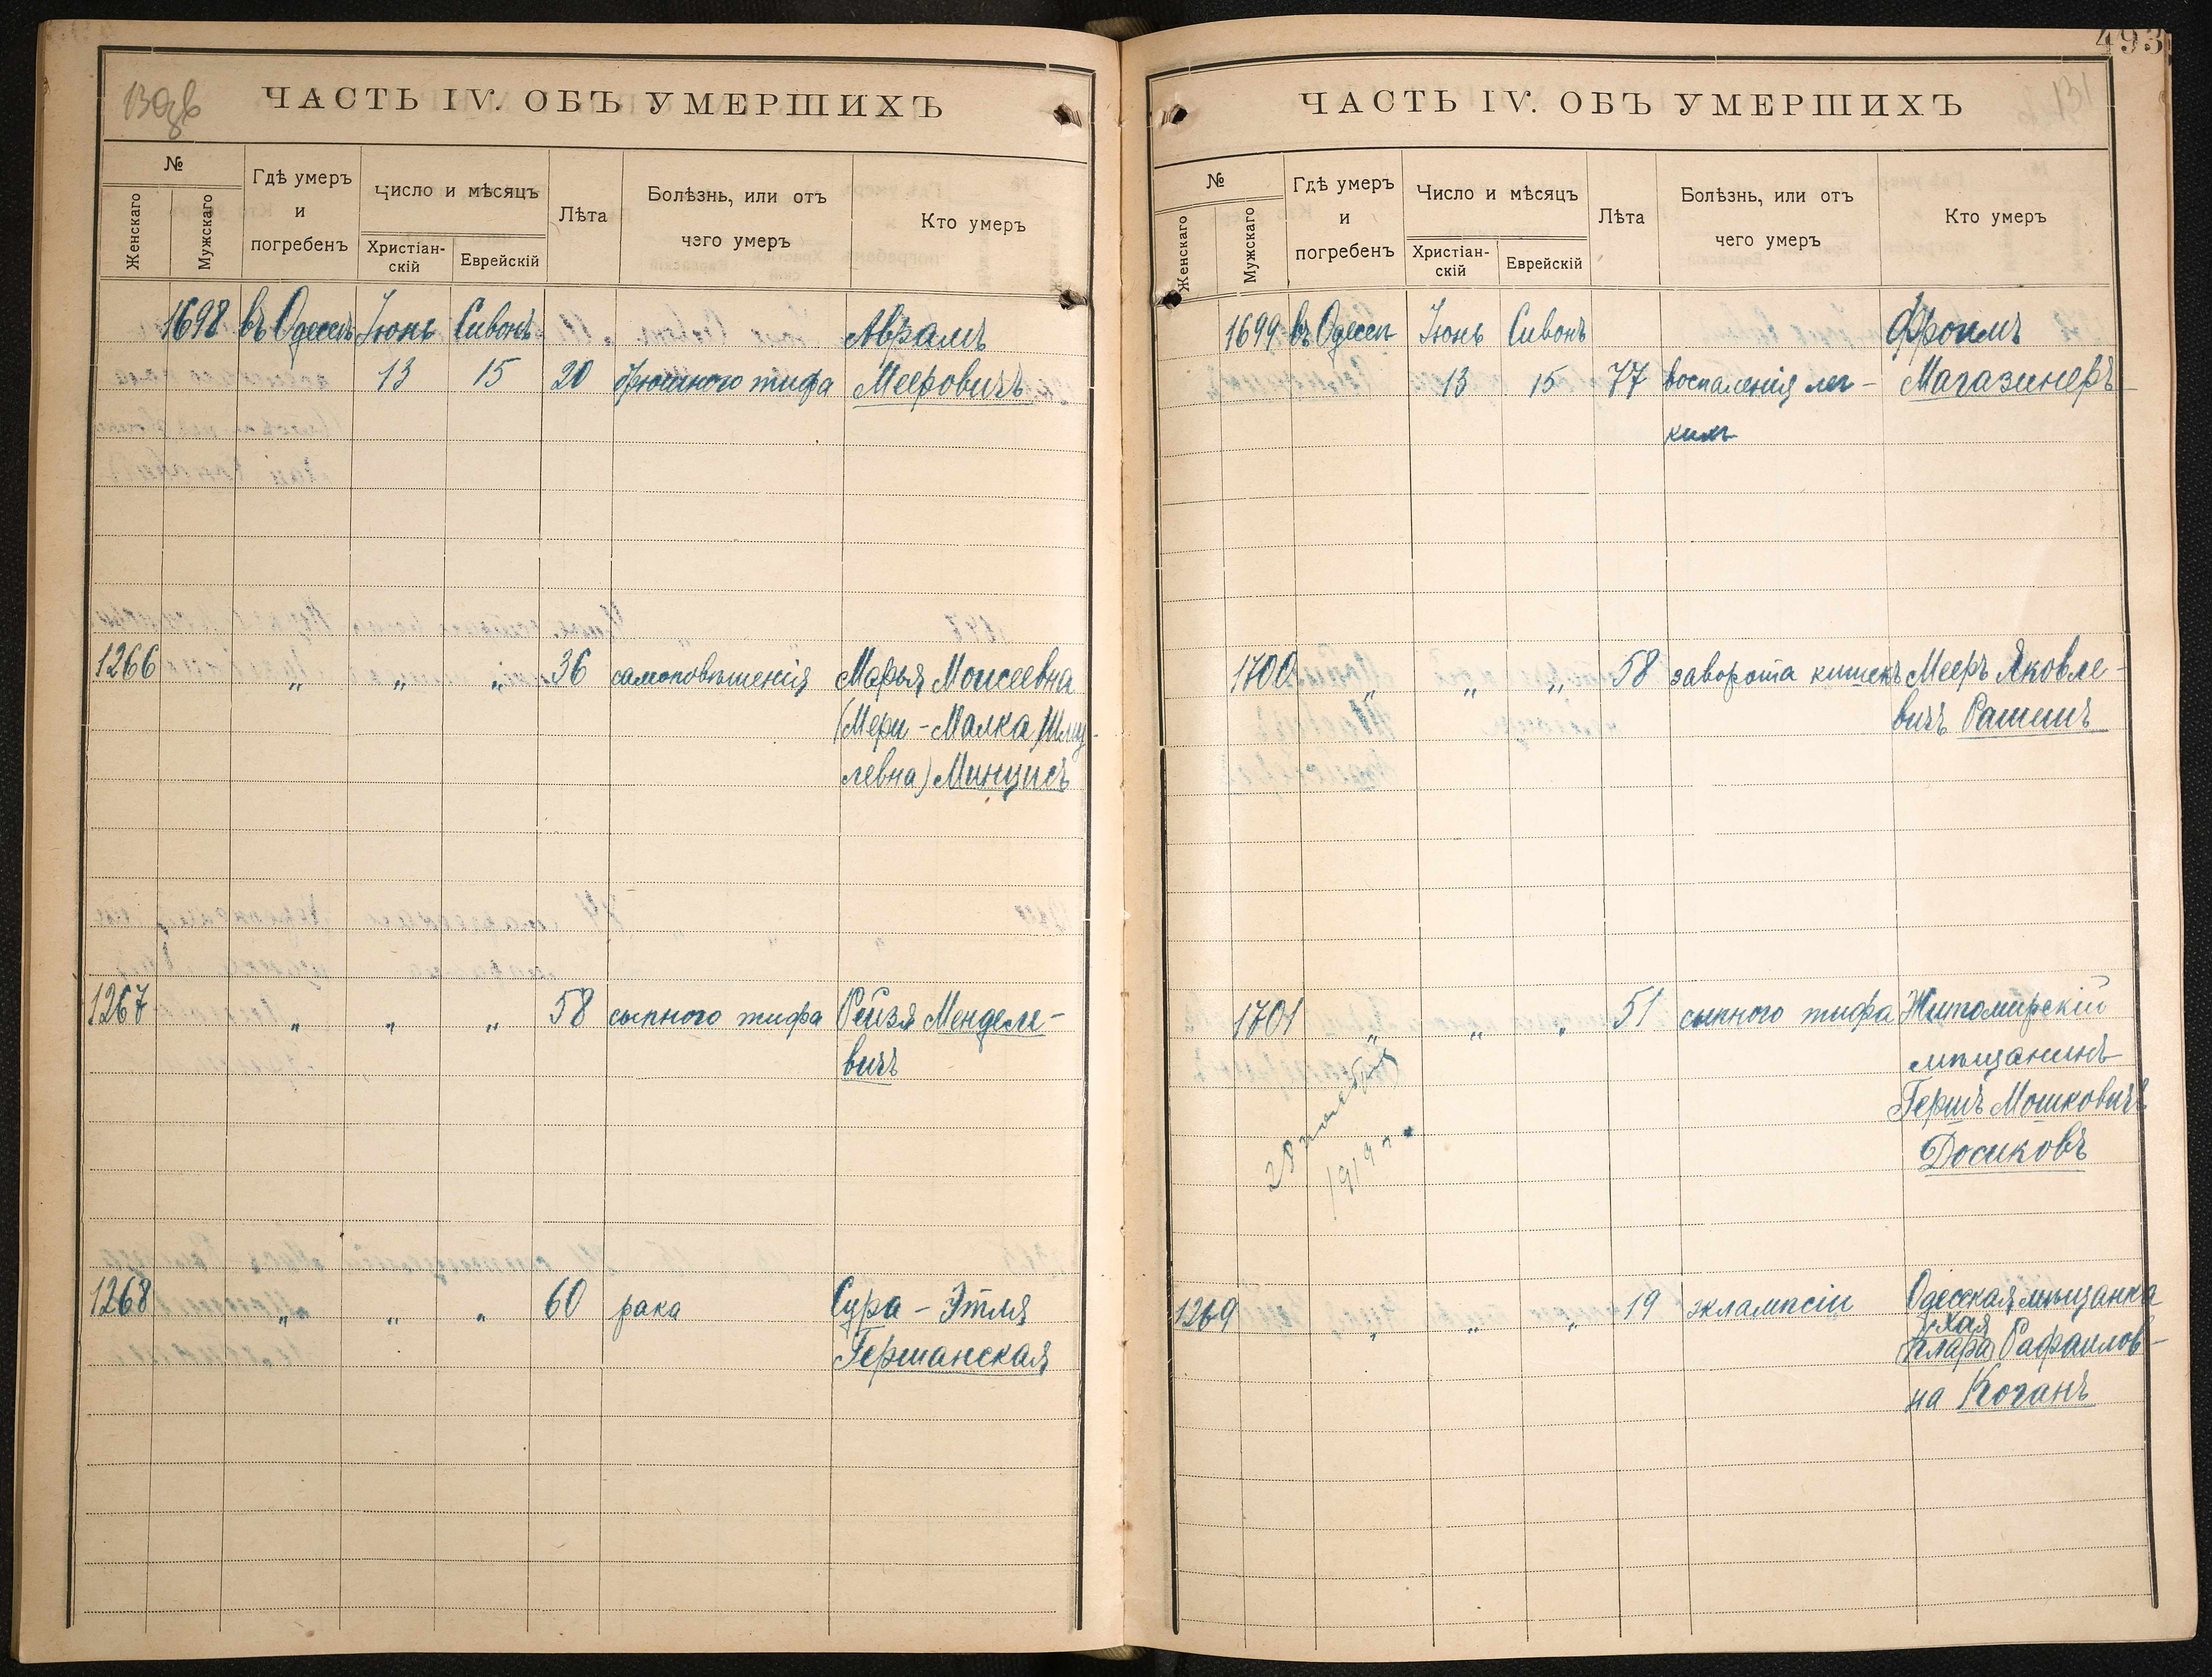 ЧАСТЬ IV. ОБЪ УМЕРШИХЪ
№
Женскаго
Мужскаго
Гдѣ умеръ
и
погребенъ
Число и мѣсяцъ
Христіан-
скій
Еврейскій
Лѣта
Болѣзнь, или отъ
чего умеръ
Кто умеръ
1698 въ Одессѣ Іюнь Сивонъ Аврамъ
13 15 20 брюшного тифа Мееровичъ
1266 „ „ „ 36 самоповѣшенія Марья Моисеевна
(Мери-Малка Шму-
левна) Минцисъ
1267 „ „ „ 58 сыпного тифа Рейзя Менделе-
вичъ
1268 „ „ „ 60 рака Сура-Этля
Германская
493
131
ЧАСТЬ IV. ОБЪ УМЕРШИХЪ
№
Женскаго
Мужскаго
Гдѣ умеръ
и
погребенъ
Число и мѣсяцъ
Христіан-
скій
Еврейскій
Лѣта
Болѣзнь, или отъ
чего умеръ
Кто умеръ
1699 въ Одессѣ Іюнь Сивонъ Фроимъ
13 15 77 воспаленія лег- Магазинеръ
кихъ
1700 „ „ „ 58 заворота кишекъ Мееръ Яковле-
вичъ Рашинъ
1701 „ „ „ 51 сыпного тифа Житомирскій
мѣщанинъ
Гершъ Мошковичъ
Досиковъ
28 ноября
1919 г.
1269 „ „ „ 19 эклампсіи Одесская мѣщанка
Хая
(Клара) Рафаилов-
на Коганъ